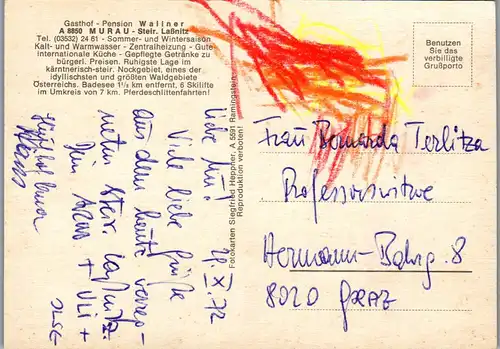 Gasthof - Pension Wallner
A 8850 MURAU - Steir. Laßnitz
Tel. (03532) 24 61 - Sommer- und Wintersaison
Kalt- und Warmwasser - Zentralheizung - Gute
Internationale Küche - Gepflegte Getränke zu
bürgerl. Preisen. Ruhigste Lage im
kärntnerisch-steir. Nockgebiet, eines der
idyllischsten und größten Waldgebiete
Österreichs. Badesee 1½ km entfernt, 6 Skilifte
im Umkreis von 7 km. Pferdeschlittenfahrten!
Benutzen
Sie das
verbilligte
Grußporto
Fotokarten Siegfried Heppner, A 5591 Ramingstein
Reproduktion verboten!
21. XI. 72
Liebe
Viele liebe Grüße
aus dem heute
Steir. Laßnitz.
+ Uli +
ILSE
Frau Bernarda Terlitza
Professorswitwe
Hermann-Bahrg. 8
8020 GRAZ